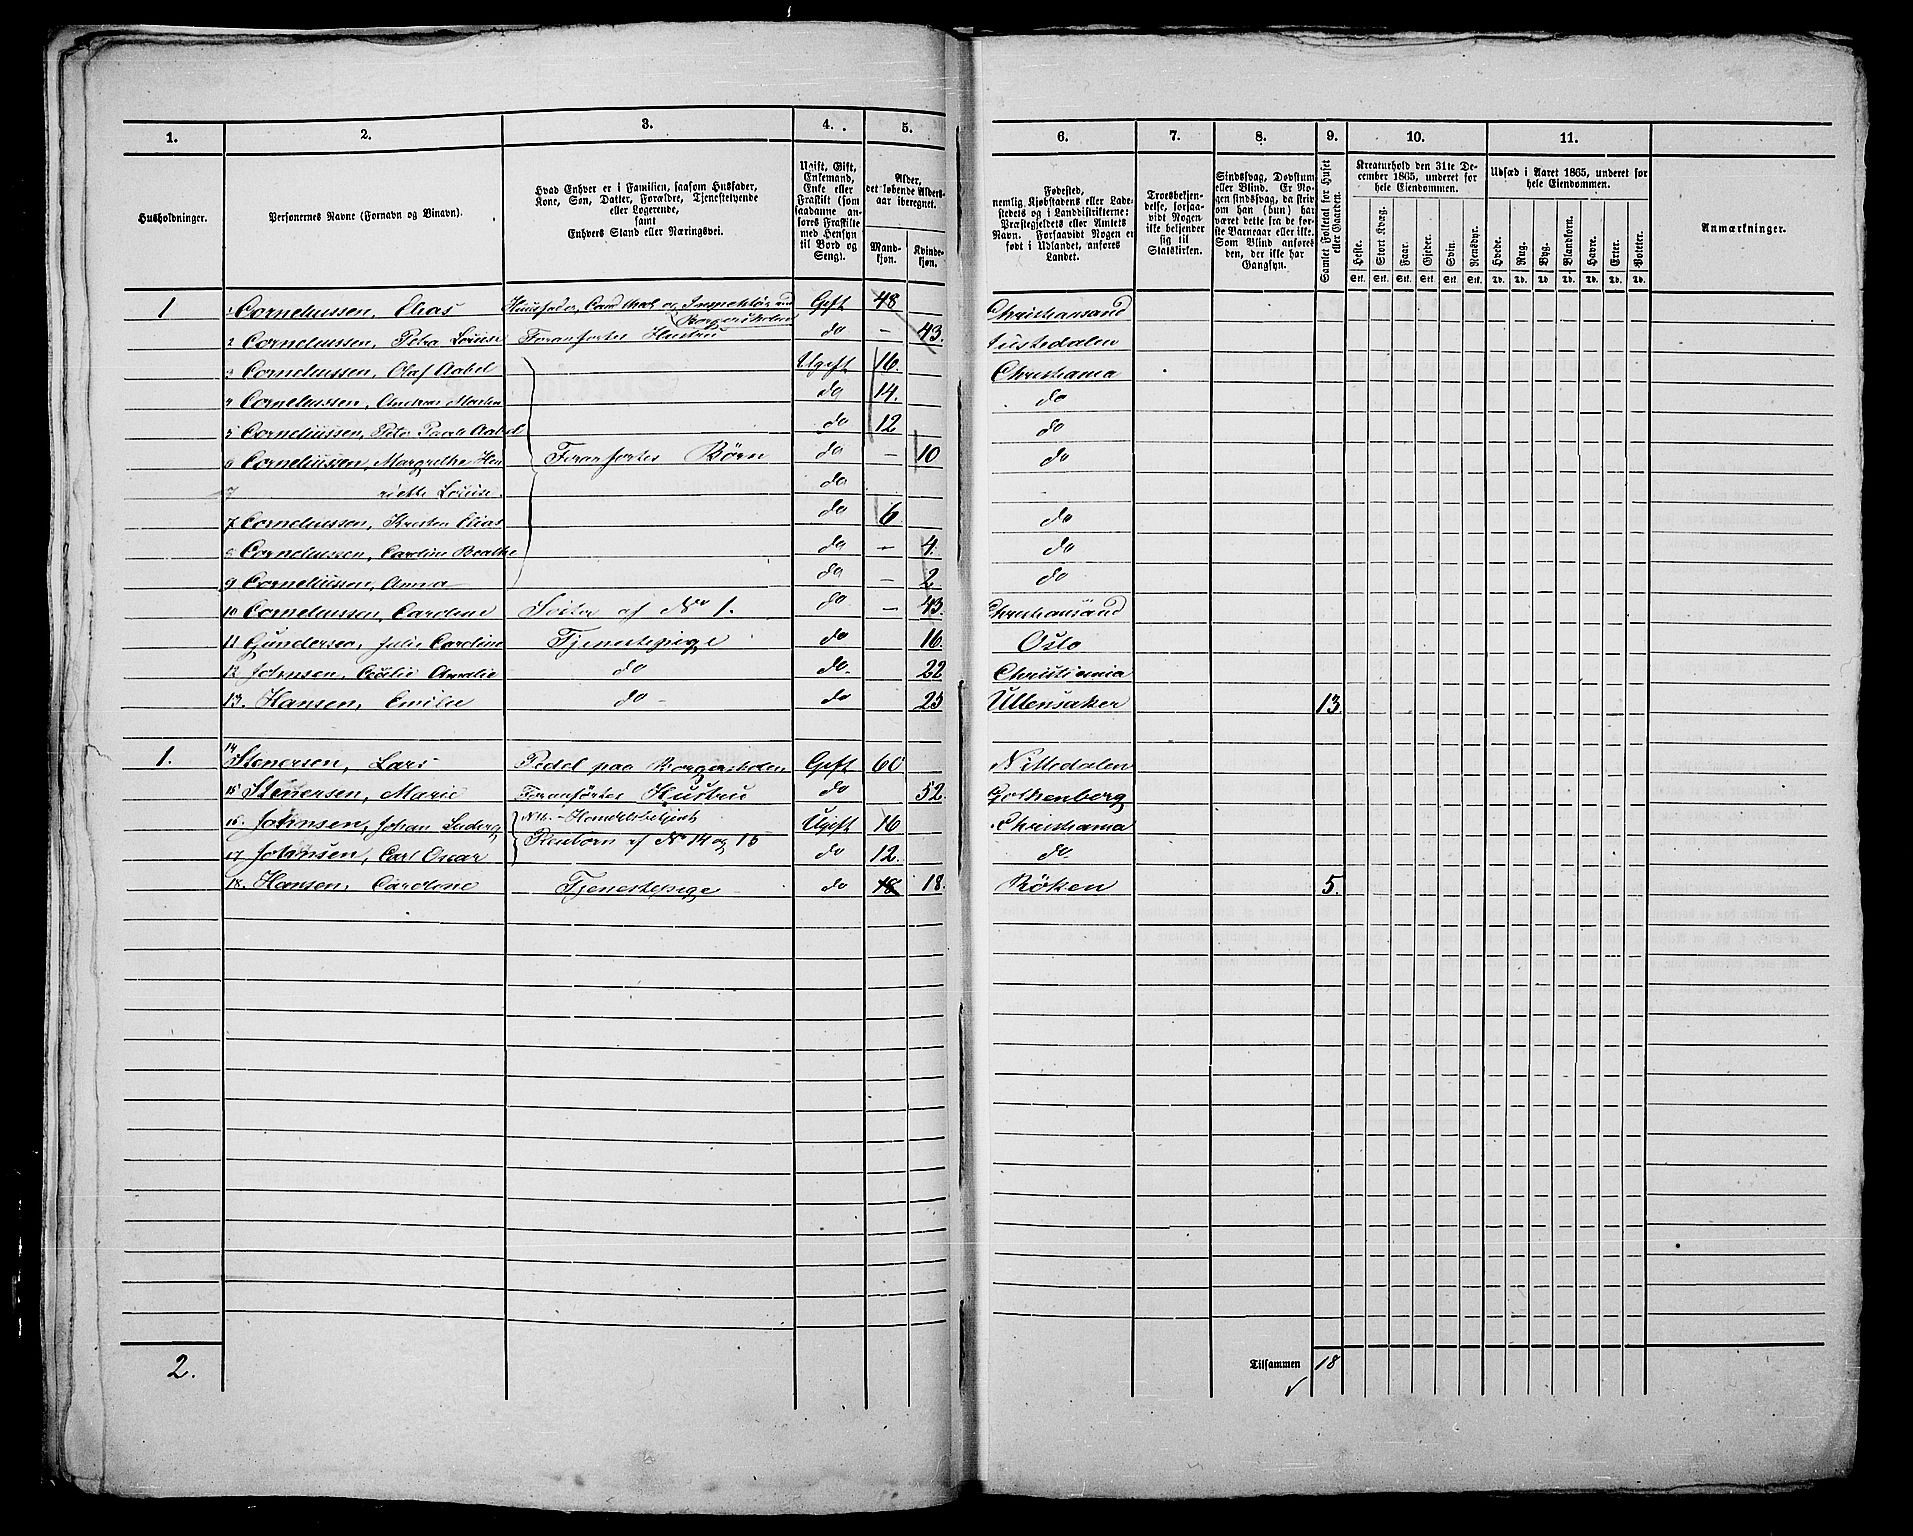 1. 2. 3. 4. 5. 6. 7. 8. 9. 10. 11.
Husholdninger.
Personernes Navne (Fornavn og Binavn).
Hvad Enhver er i Familien, saasom Husfader,
Kone, Søn, Datter, Forældre, Tjenestetyende
eller Logerende,
samt
Enhvers Stand eller Næringsvei.
Ugift, Gift,
Enkemand,
Enke eller
Fraskilt (som
saadanne an-
føres Fraskilte
med Hensyn
til Bord og
Seng).
Alder,
det løbende Alders-
aar iberegnet.
Mand-
kjøn.
Kvinde-
kjøn.
Fødested,
nemlig Kjøbstadens eller Lade-
stedets og i Landdistrikterne:
Præstegjeldets eller Amtets
Navn. Forsaavidt Nogen er
født i Udlandet, anføres
Landet.
Troesbekjen-
delse, forsaa-
vidt Nogen
ikke bekjender
sig til
Statskirken.
Sindssvag, Døvstum
eller Blind. Er No-
gen sindssvag, da skriv
om han (hun) har
været dette fra de før-
ste Barneaar eller ikke.
Som Blind anføres
den, der ikke har
Gangsyn.
Samlet Folketal for Huset
eller Gaarden.
Kreaturhold den 31te De-
cember 1865, underet for
hele Eiendommen.
Heste. Stort Kvæg. Faar. Gjeder. Svin. Rensdyr.
Stk. Stk. Stk. Stk. Stk. Stk.
Udsæd i Aaret 1865, underet for
hele Eiendommen.
Hvede. Rug. Byg. Blandkorn. Havre. Erter. Poteter.
Td. Td. Td. Td. Td. Td. Td.
Anmærkninger.
1 1 Corneliussen, Elias Huusfader, Cand. theol. og Inspektör ved Borgerskolen Gift 48 Christiansand
2 Corneliussen, Petra Louise Foranførtes Hustru do — 43. Justedalen
3 Corneliussen, Olaf Aabel Ugift 16. Christiania
4 Corneliussen, Andreas do 14. do
5 Corneliussen, Peter Aabel do 12 do
6 Corneliussen, Margrethe Hen Foranførtes Børn do — 10 do
7 riette Louise. do
7 Corneliussen, Kristen Elias do 6. do
8 Corneliussen, Caroline Beathe do — 4. do
9 Corneliussen, Anna do — 2. do
10 Corneliussen, Caroline Søster af No 1. do — 43. Christiansand
11 Gundersen, Julie Caroline Tjenestepige do 16. Oslo
12 Johnsen, Cecilie Amalie do do 22 Christiania
13. Hansen, Emilie do do 25 Ullensaker 13.
1. 14 Stenersen, Lars Pedel paa Borgerskolen Gift 60 Nittedalen
15 Stenersen, Marie Foranførtes Hustru do 52. Gothenberg
16. Johnsen, Johan Ugift 16 Christiania
Pleiebørn af No 14 og 15
17 Johnsen, Carl Oscar do 12. do
18. Hansen, Caroline Tjenestepige do 18 18. Röken 5.
2.
Tilsammen 18